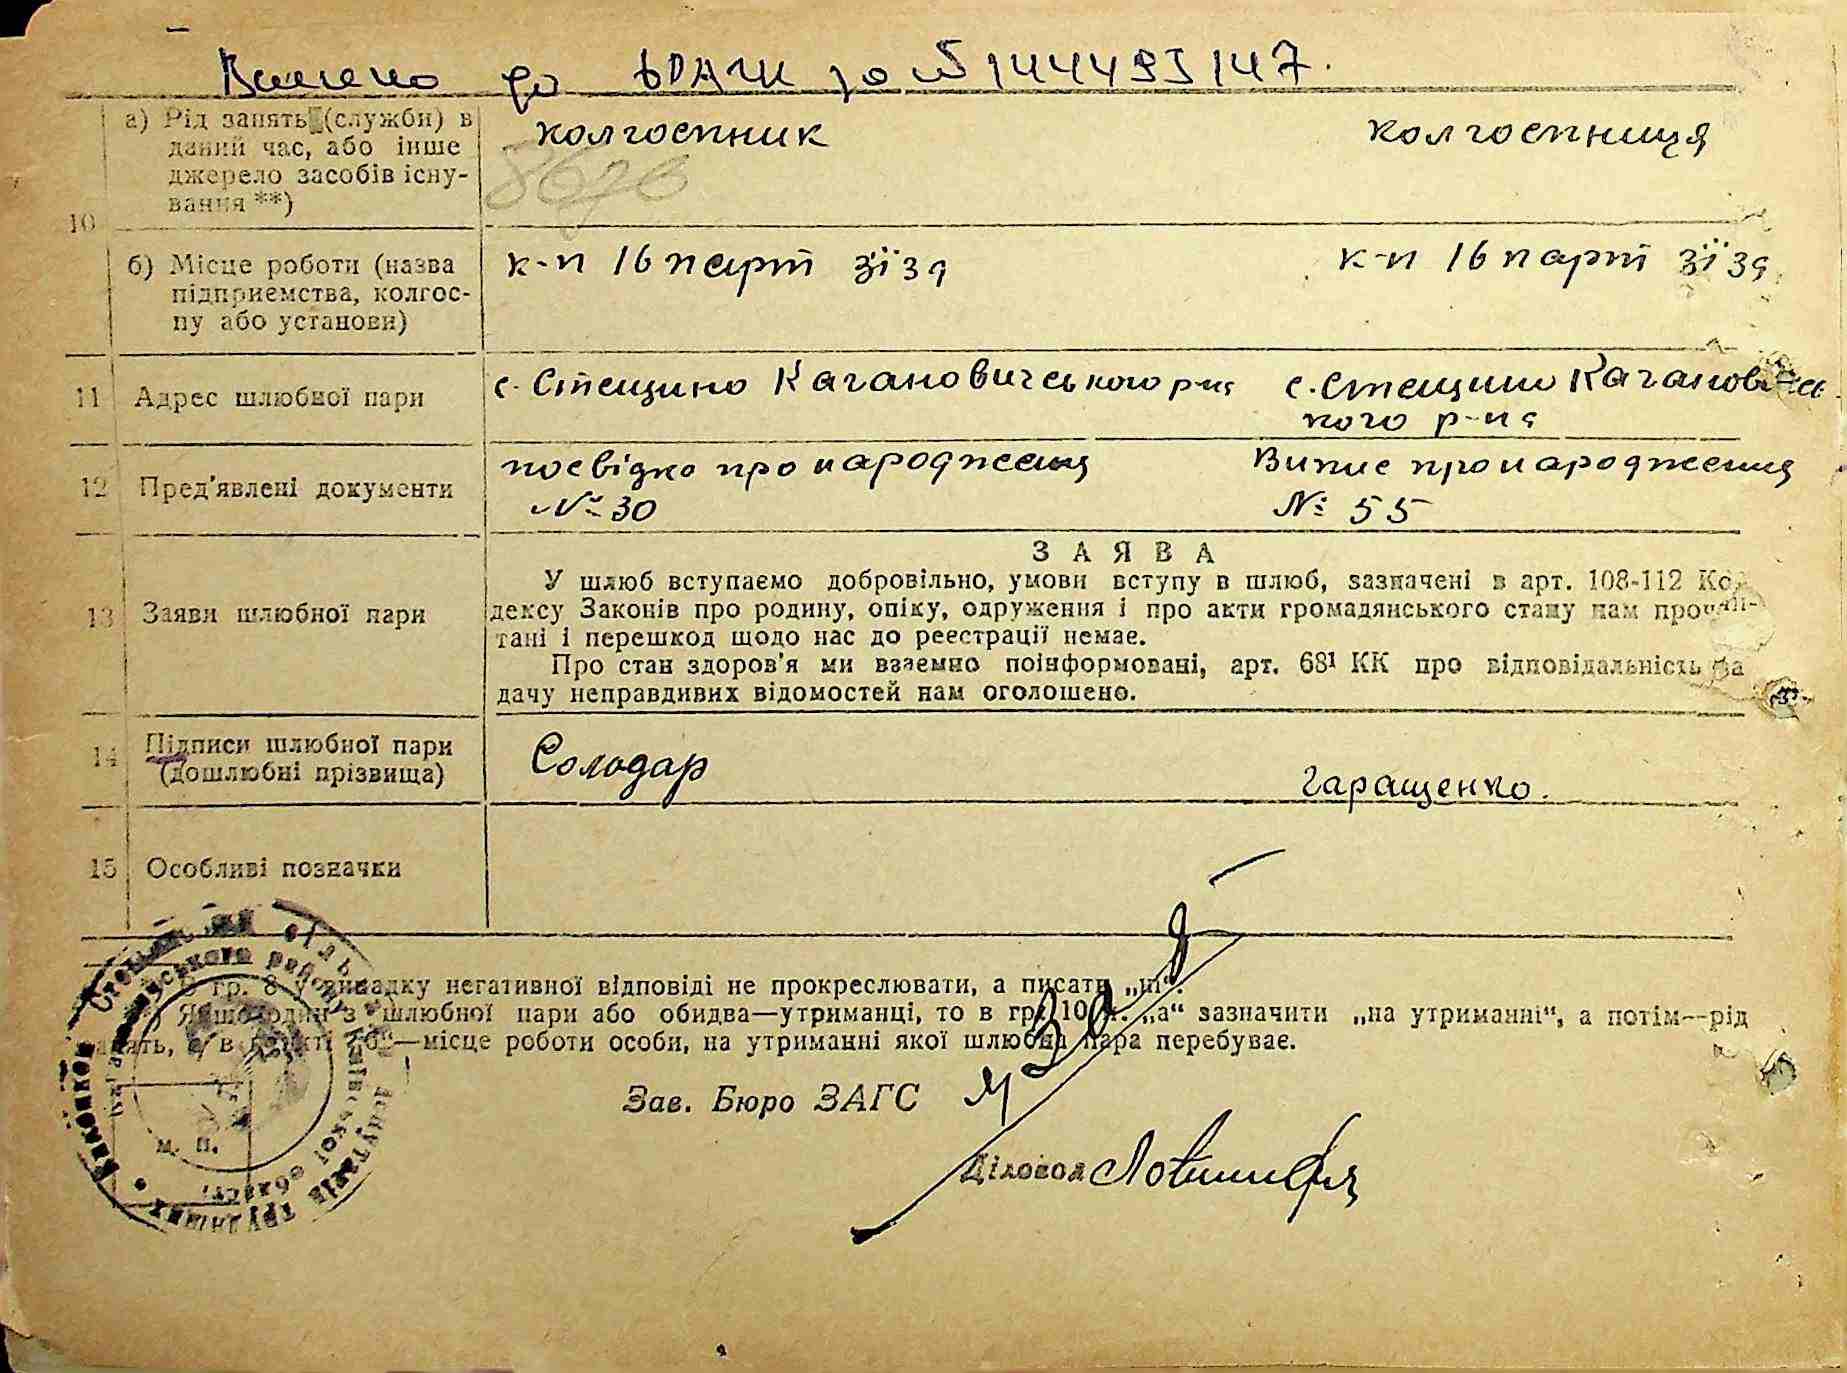 Внесено до ДРАЦС за № 144493147.
10
а) Рід занять (служби) в даний час, або інше джерело засобів існування **)
колгоспник
колгоспниця
8676
б) Місце роботи (назва підприємства, колгоспу або установи)
к-п 16 парт зїзд
к-п 16 парт зїзд
11 Адрес шлюбної пари
с. Стещино Кагановичського р-на
с. Стещино Кагановичсь
кого р-на
12 Пред'явлені документи
посвідко про народження
№ 30
Випис про народження
№ 55
13 Заяви шлюбної пари
ЗАЯВА
У шлюб вступаємо добровільно, умови вступу в шлюб, зазначені в арт. 108-112 Ко-
дексу Законів про родину, опіку, одруження і про акти громадянського стану нам прочи-
тані і перешкод щодо нас до реєстрації немає.
Про стан здоров'я ми взаємно поінформовані, арт. 68¹ КК про відповідальність за
дачу неправдивих відомостей нам оголошено.
14 Підписи шлюбної пари
(дошлюбні прізвища)
Солодар
Гаращенко.
15 Особливі позначки
В гр. 8 у випадку негативної відповіді не прокреслювати, а писати „ні“.
Якщо один з шлюбної пари або обидва—утриманці, то в гр. 10 п. „а“ зазначити „на утриманні“, а потім—рід
занять, а в пункті „б“—місце роботи особи, на утриманні якої шлюбна пара перебуває.
Зав. Бюро ЗАГС
Діловод
М. П.
Виконком
депутатів трудящих
району Київської області